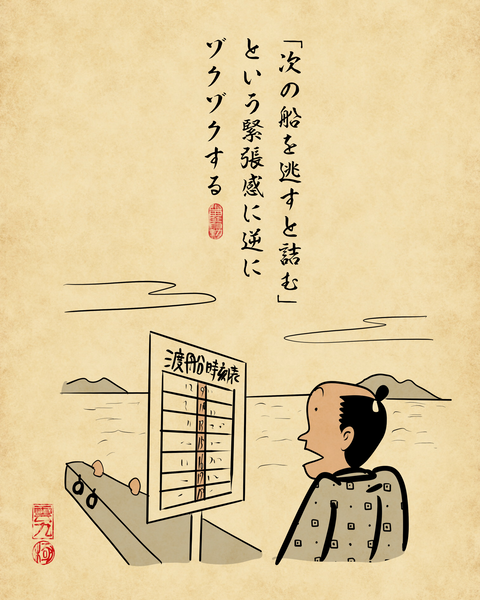 「次の船を逃すと詰む」
という緊張感に逆に
ゾクゾクする
渡船時刻表